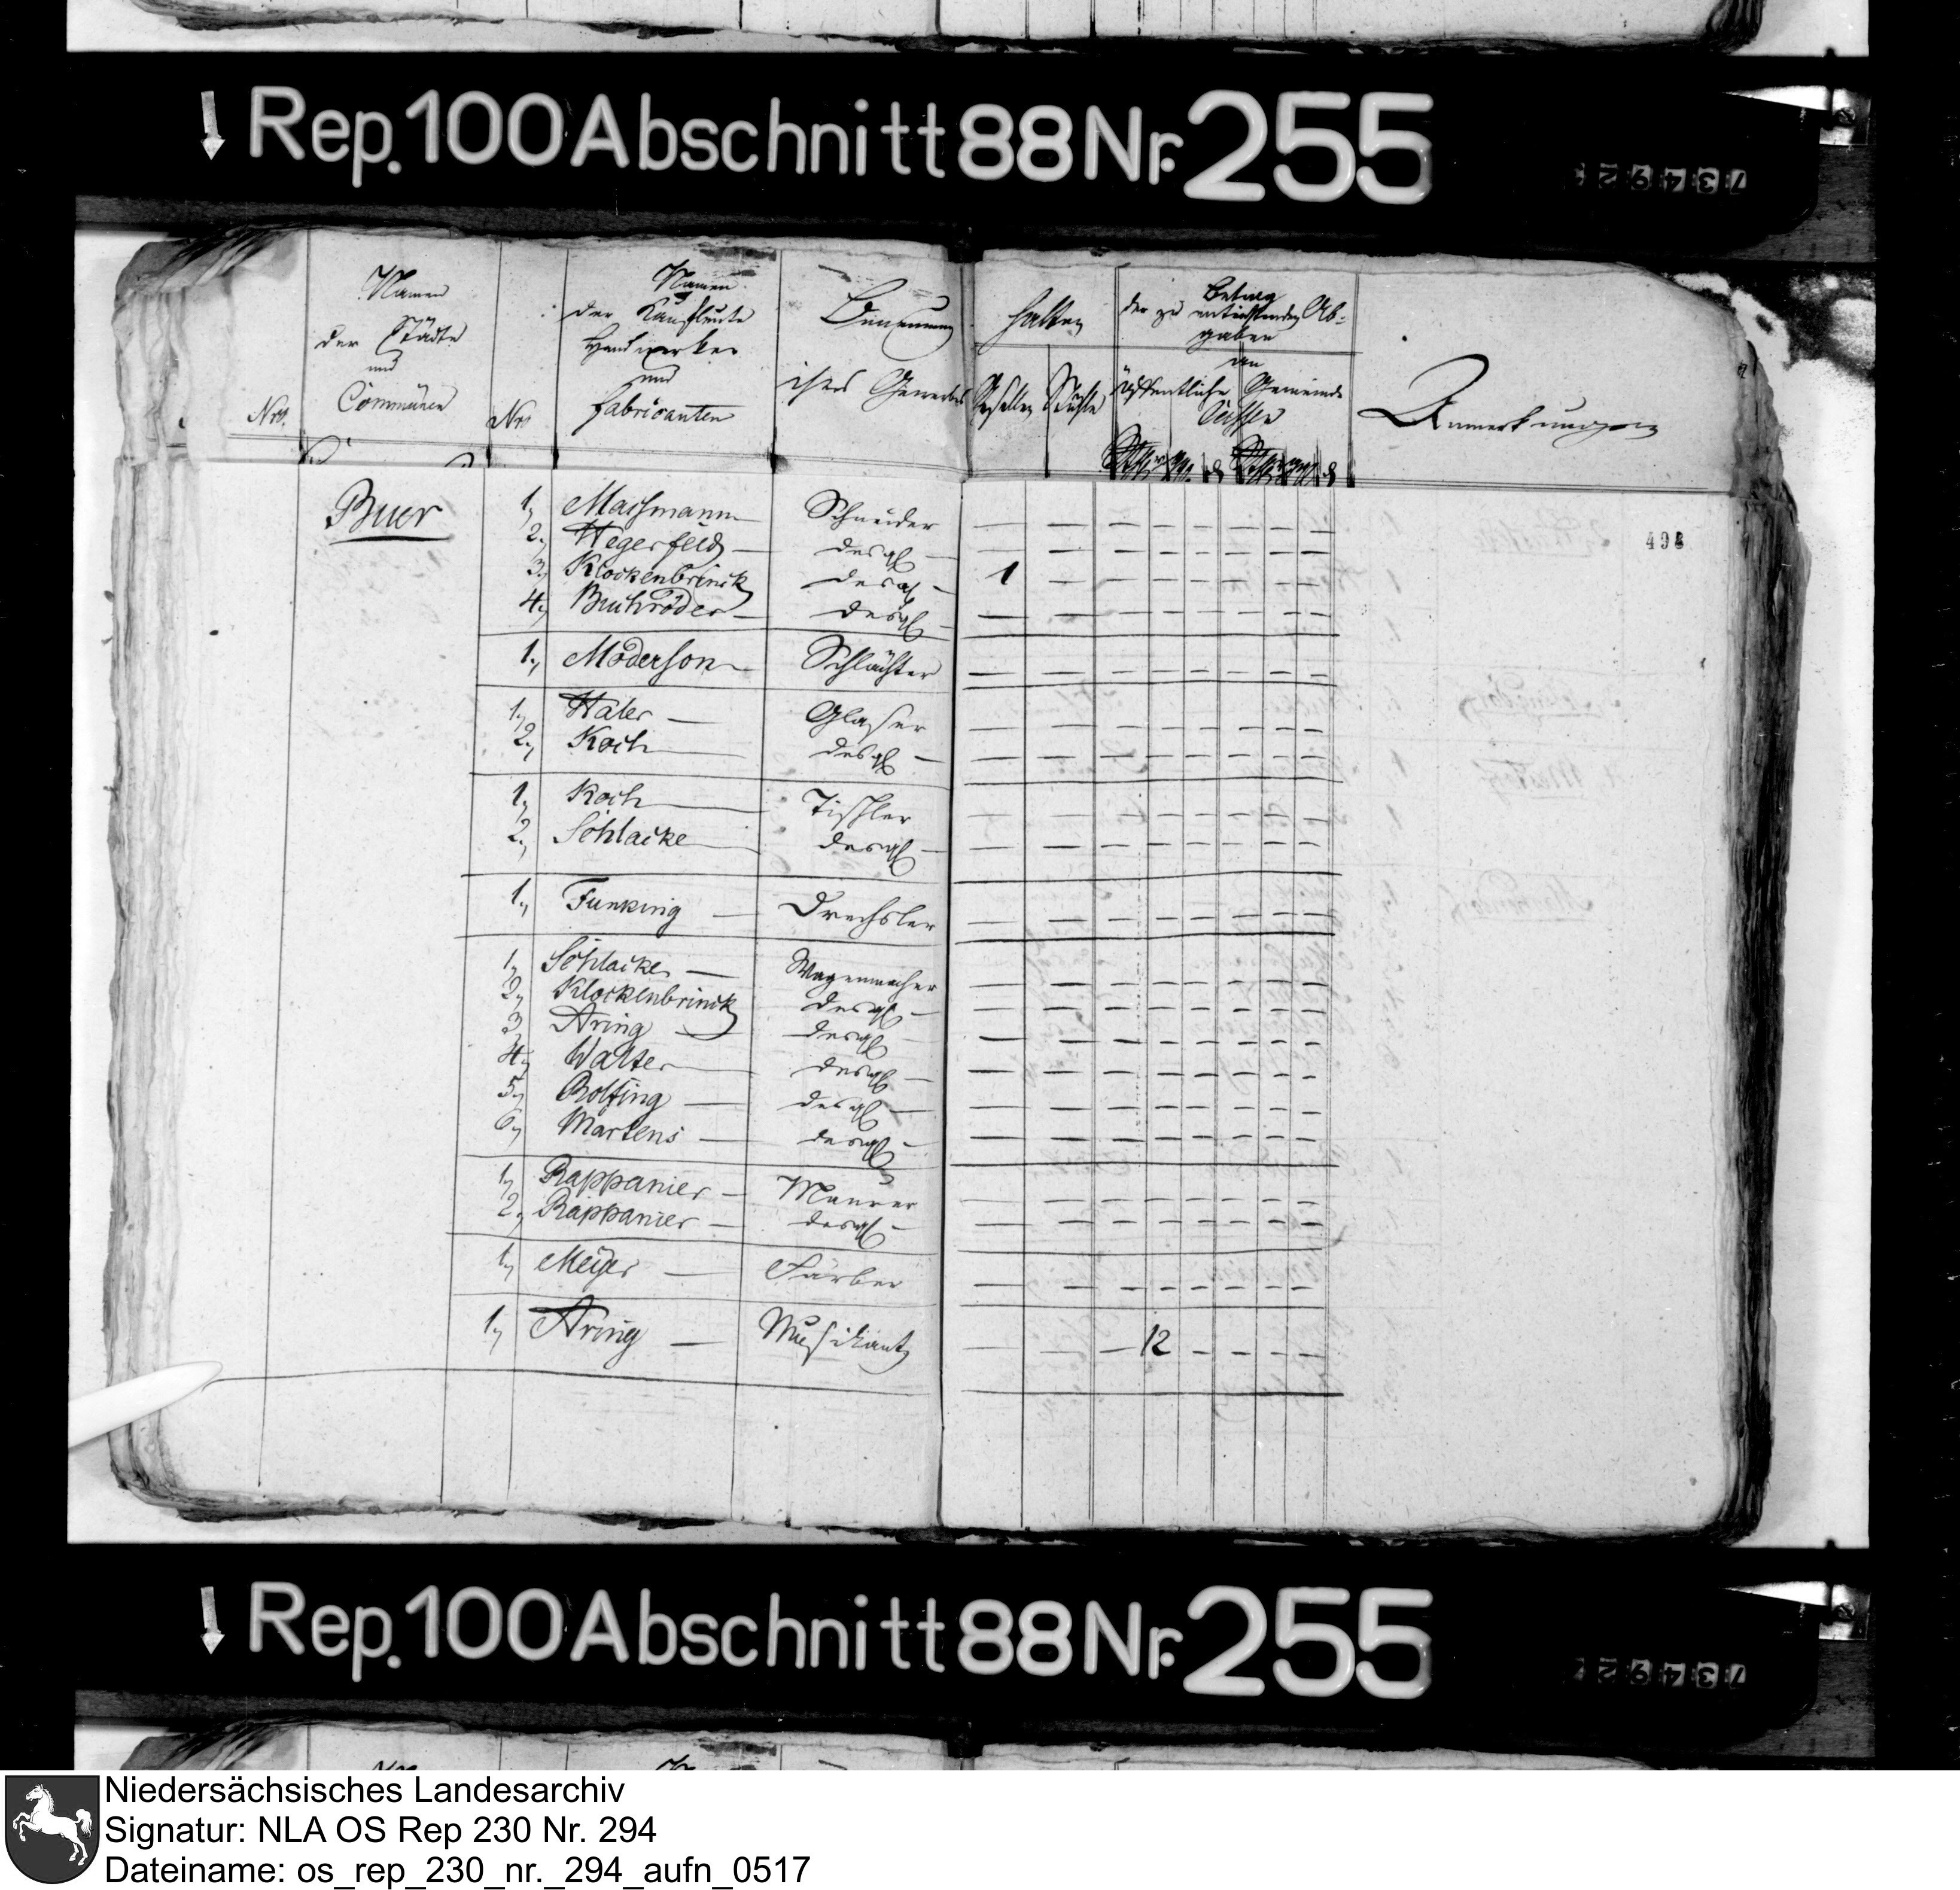 Rep. 100 Abschnitt 88 Nr. 255
Namen der Städte und Communen
Namen der Kaufleute Handwerker und Fabricanten
Benennung ihres Gewerbes
halten
Gesellen Stühle
Betrag der zu entrichtenden Abgaben
an
öffentliche Gemeinde
Cassen
Anmerkungen
Nro.
Nro
498
Buer
1, Massmann Schneider — — — — — — — —
2, Hegerfeld — desgl — — — — — — — — —
3, Klockenbrinck desgl — 1 — — — — — — —
4, Buhröder — desgl — — — — — — — — —
1, Möderson Schlächter — — — — — — — —
1, Häler — Glaser — — — — — — — —
2, Koch desgl — — — — — — — — —
1, Koch Tischler — — — — — — — —
2, Schlacke desgl — — — — — — — — —
1, Funking — Drechsler — — — — — — — —
1, Schlacke — Wagenmacher — — — — — — — —
2, Klockenbrinck desgl — — — — — — — — —
3, Aring — desgl — — — — — — — — —
4, Walter desgl — — — — — — — — —
5, Rolfing — desgl — — — — — — — — —
6, Martens — desgl — — — — — — — — —
1, Rappanier — Maurer — — — — — — — —
2, Rappanier — desgl — — — — — — — — —
1, Meyer — Färber — — — — — — — —
1, Aring — Musikant — — — 12 — — — —
Rep. 100 Abschnitt 88 Nr. 255
Niedersächsisches Landesarchiv
Signatur: NLA OS Rep 230 Nr. 294
Dateiname: os_rep_230_nr._294_aufn_0517